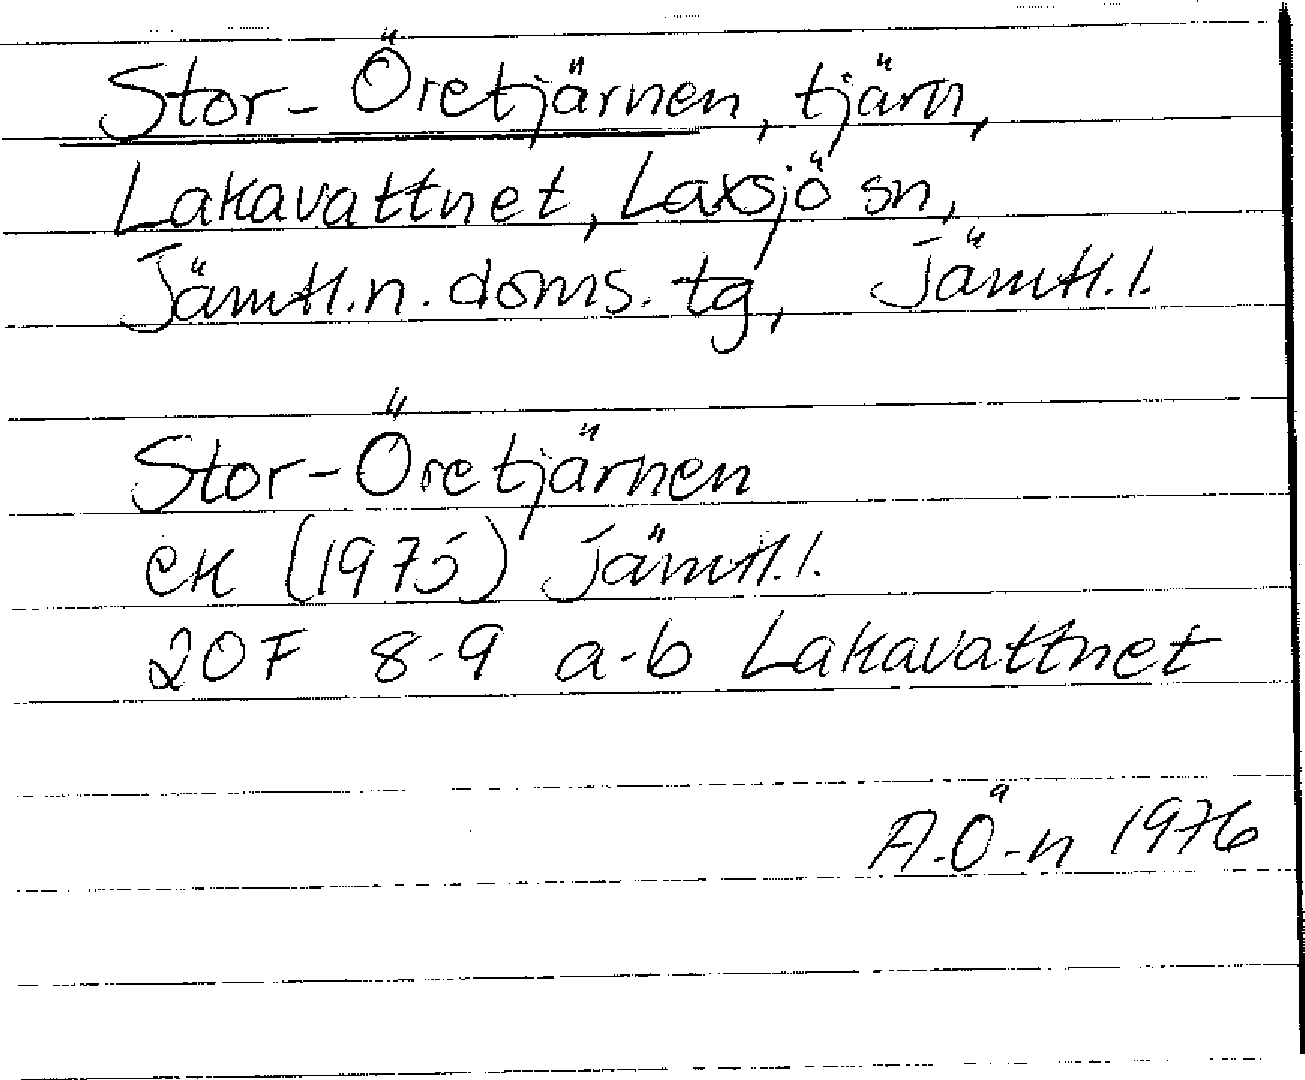 Stor-Öretjärnen, tjärn,
Lakavattnet, Laxsjö sn,
Jämtl.n.doms.tg, Jämtl.l.
Stor-Öretjärnen
ek (1975) Jämtl.l.
20F 8-9 a-b Lakavattnet
A.Ö-n 1976